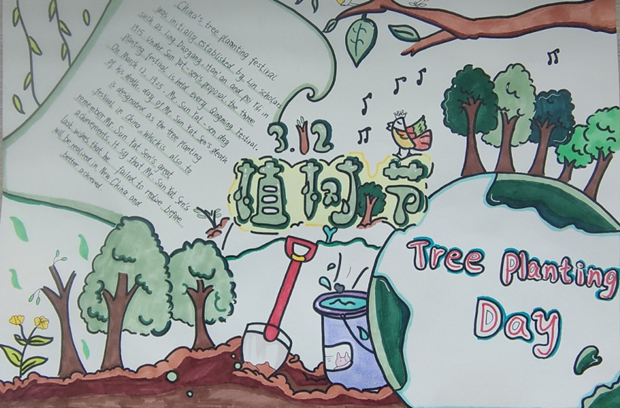 China's tree planting festival
was initially established by Lin scholars
such as Ling Daoyang, Han'an and Pei Yili in
1915. Under Sun Yat-sen's proposal, the
planting festival is held every Qingming Festival.
On March 12, 1925, Mr. Sun Yat-sen
death day of Mr. Sun Yat-sen's death
is designated as the tree planting
festival in China, which is also to
remember Mr. Sun Yat-sen's great
achievements. It sy that Mr. Sun Yat-sen's
last wishes that he failed to realize before
will be realized in New China and
better achieved
3.12
植树节
Tree Planting
Day